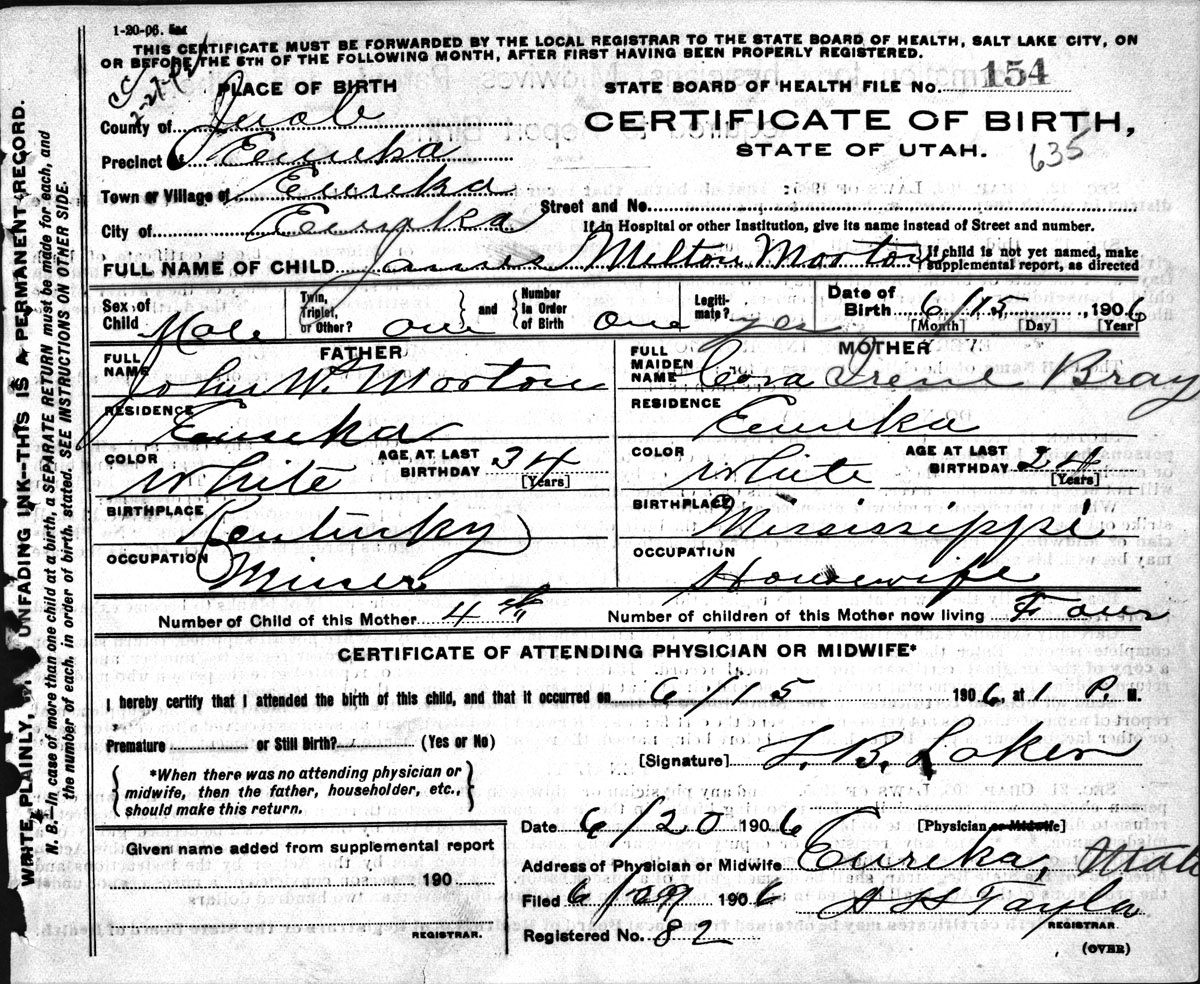 1-20-06. 5M
THIS CERTIFICATE MUST BE FORWARDED BY THE LOCAL REGISTRAR TO THE STATE BOARD OF HEALTH, SALT LAKE CITY, ON
OR BEFORE THE 5TH OF THE FOLLOWING MONTH, AFTER FIRST HAVING BEEN PROPERLY REGISTERED.
PLACE OF BIRTH
STATE BOARD OF HEALTH FILE NO. 154
County of Juab
CERTIFICATE OF BIRTH,
STATE OF UTAH.
635
Precinct Eureka
Town or Village of Eureka
Street and No.
City of Eureka
If in Hospital or other Institution, give its name instead of Street and number.
FULL NAME OF CHILD James Melton Morton
If child is not yet named, make
supplemental report, as directed
Sex of Child Male
Twin, Triplet, or Other? one
and
Number In Order of Birth one
Legitimate? yes
Date of Birth 6/15, 1906
[Month] [Day] [Year]
FATHER
FULL NAME John W. Morton
RESIDENCE Eureka
COLOR White
AGE AT LAST BIRTHDAY 34
[Years]
BIRTHPLACE Kentucky
OCCUPATION Miner
MOTHER
FULL MAIDEN NAME Cora Irene Bray
RESIDENCE Eureka
COLOR White
AGE AT LAST BIRTHDAY 24
[Years]
BIRTHPLACE Mississippi
OCCUPATION Housewife
Number of Child of this Mother 4th
Number of children of this Mother now living Four
CERTIFICATE OF ATTENDING PHYSICIAN OR MIDWIFE*
I hereby certify that I attended the birth of this child, and that it occurred on 6/15 1906, at 1 P. M.
Premature or Still Birth? (Yes or No)
[Signature]
*When there was no attending physician or
midwife, then the father, householder, etc.,
should make this return.
Date 6/20 1906
[Physician or Midwife]
Given name added from supplemental report
190
REGISTRAR.
Address of Physician or Midwife Eureka, Utah
Filed 6/29 1906
REGISTRAR.
Registered No. 82
(OVER)
WRITE PLAINLY, UNFADING INK--THIS IS A PERMANENT RECORD.
N. B.--In case of more than one child at a birth, a SEPARATE RETURN must be made for each, and
the number of each, in order of birth, stated. SEE INSTRUCTIONS ON OTHER SIDE.